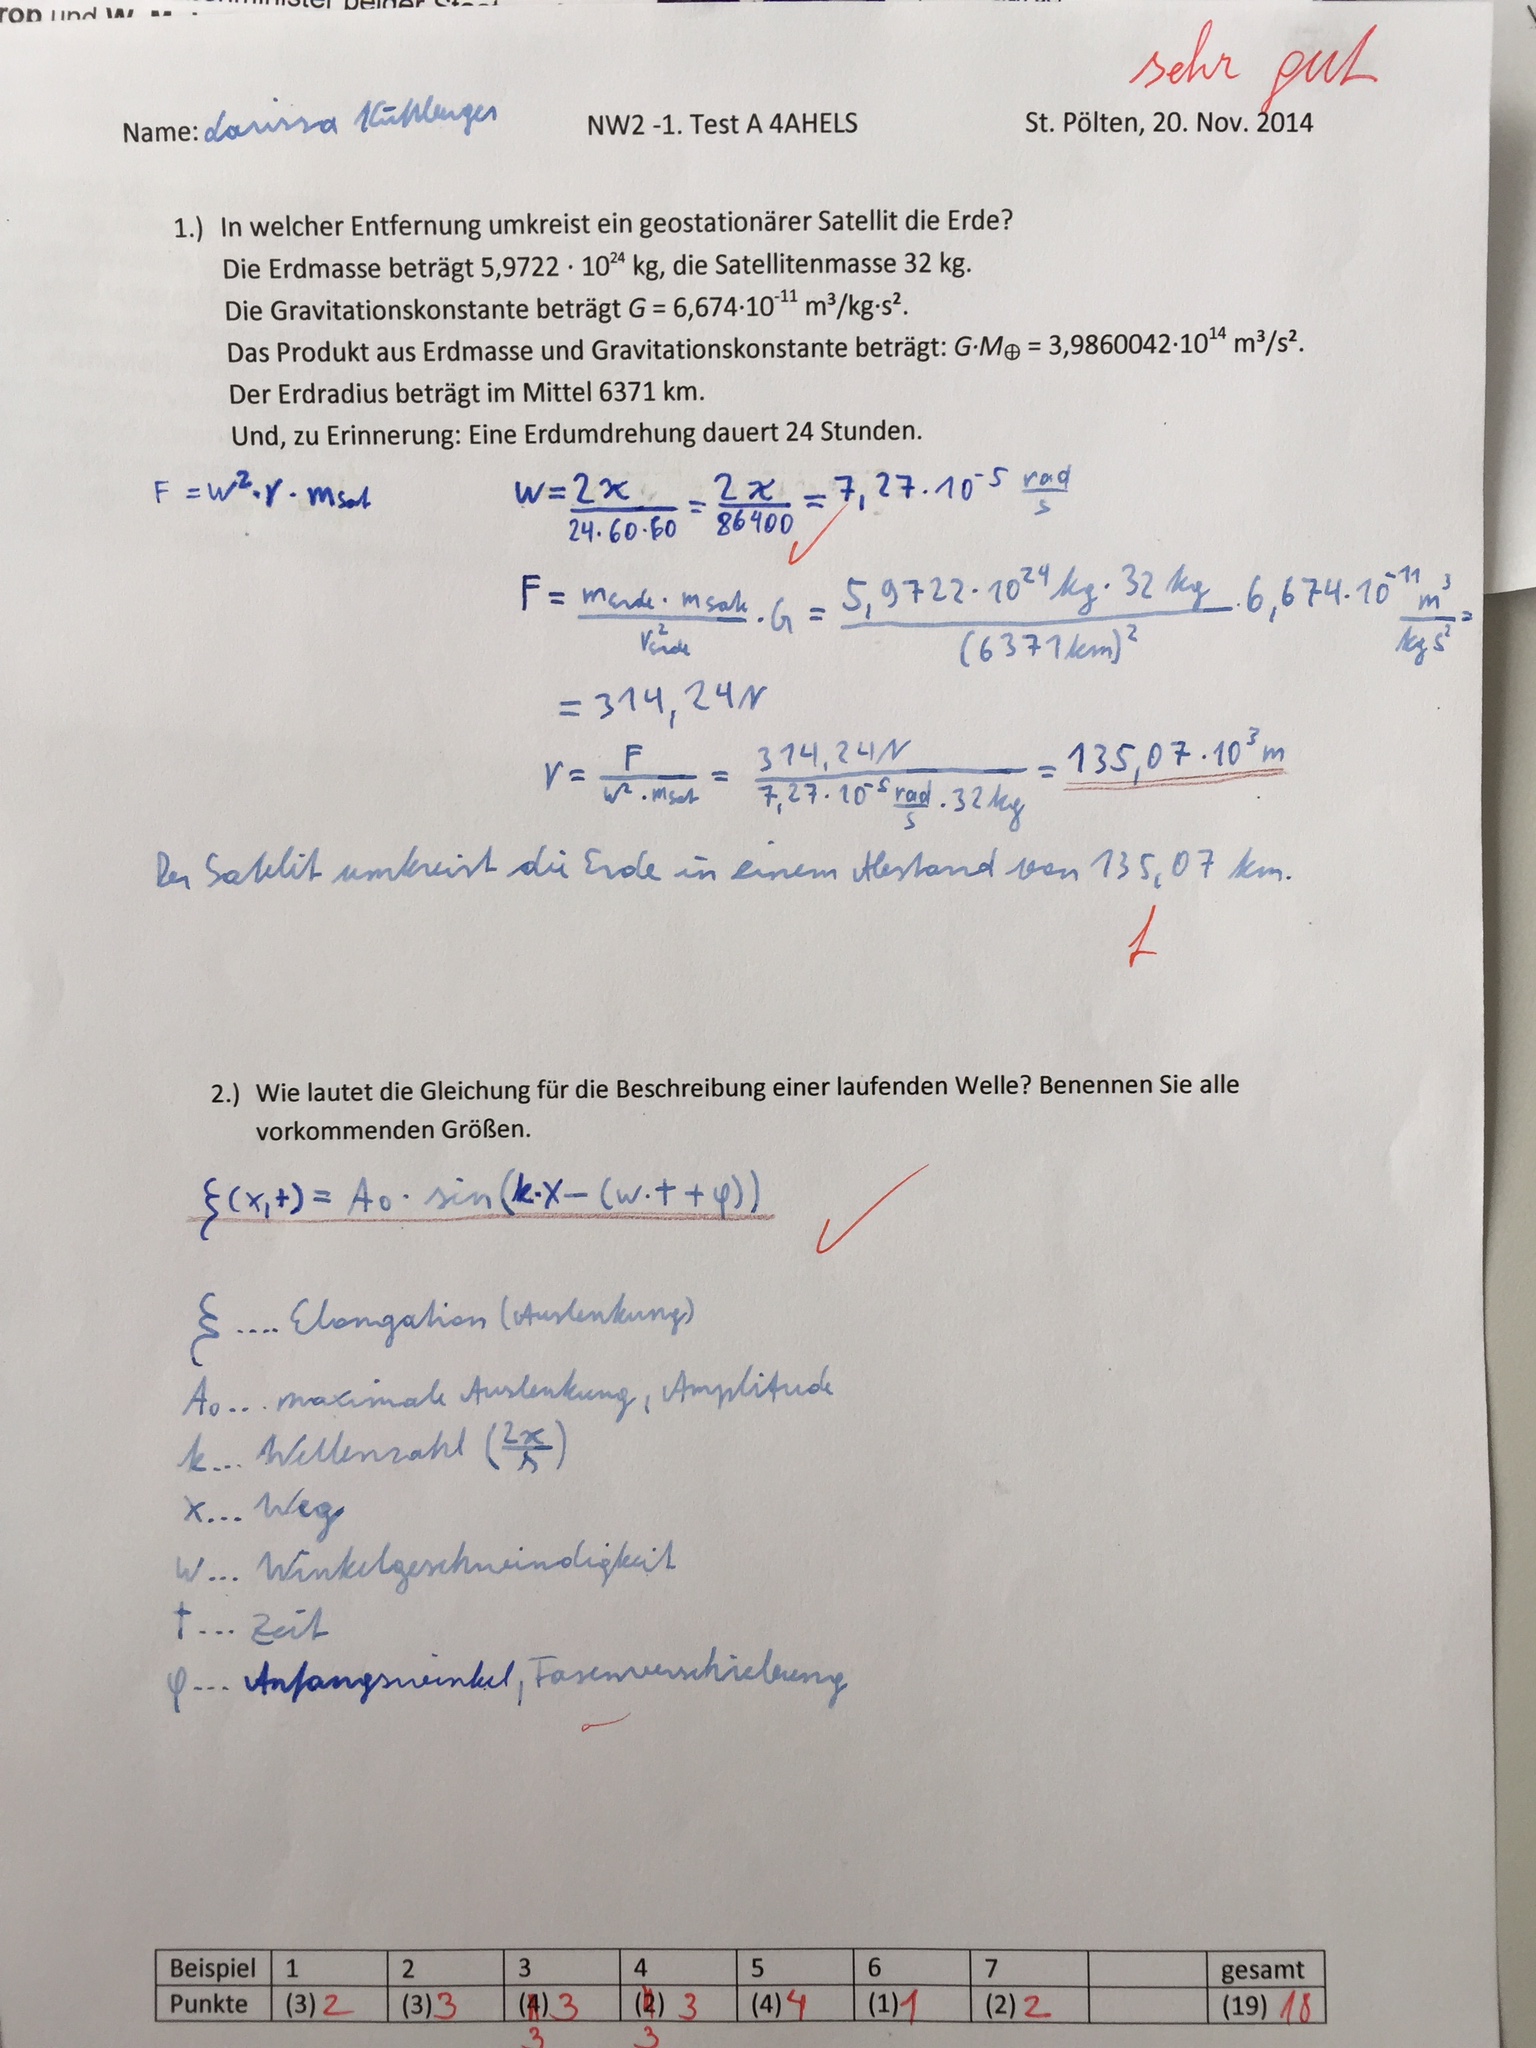 sehr gut
Name: Larissa NW2 -1. Test A 4AHELS St. Pölten, 20. Nov. 2014
1.) In welcher Entfernung umkreist ein geostationärer Satellit die Erde?
Die Erdmasse beträgt 5,9722 · 10²⁴ kg, die Satellitenmasse 32 kg.
Die Gravitationskonstante beträgt G = 6,674·10⁻¹¹ m³/kg·s².
Das Produkt aus Erdmasse und Gravitationskonstante beträgt: G·M⊕ = 3,9860042·10¹⁴ m³/s².
Der Erdradius beträgt im Mittel 6371 km.
Und, zu Erinnerung: Eine Erdumdrehung dauert 24 Stunden.
F = w²·r·msat w = 2π/24·60·60 = 2π/86400 = 7,27·10⁻⁵ rad/s
F = merde·msat/r²erde · G = 5,9722·10²⁴ kg·32 kg/(6371km)² · 6,674·10⁻¹¹ m³/kg s² =
= 314,24N
r = F/w²·msat = 314,24N/7,27·10⁻⁵ rad/s · 32kg = 135,07·10³ m
Der Satellit umkreist die Erde in einem Abstand von 135,07 km.
f
2.) Wie lautet die Gleichung für die Beschreibung einer laufenden Welle? Benennen Sie alle
vorkommenden Größen.
ξ(x,t) = A₀ · sin(k·x – (w·t + φ))
ξ .... Elongation (Auslenkung)
A₀... maximale Auslenkung, Amplitude
k... Wellenzahl (2π/λ)
x... Weg
w... Winkelgeschwindigkeit
t... Zeit
φ... Anfangswinkel, Fasenverschiebung
Beispiel 1 2 3 4 5 6 7 gesamt
Punkte (3) 2 (3) 3 (4) 3 (2) 3 (4) 4 (1) 1 (2) 2 (19) 18
3 3